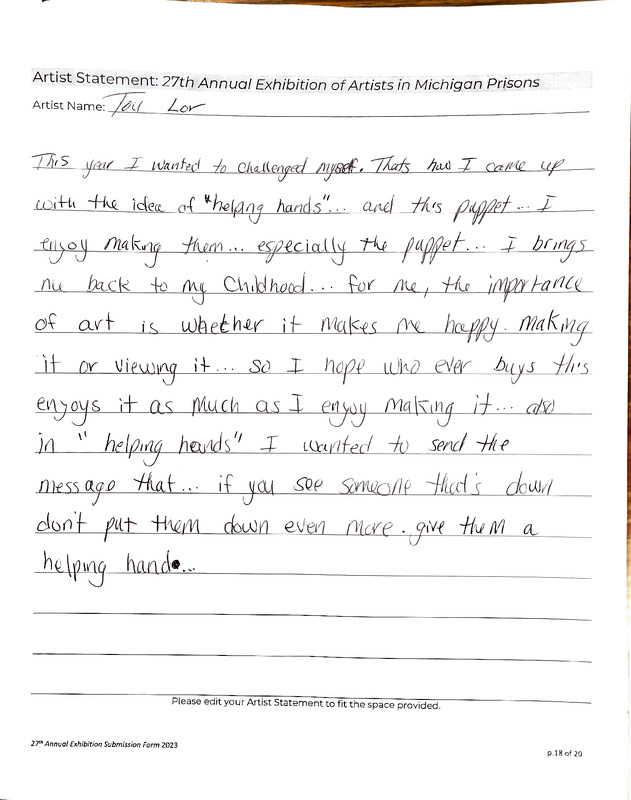 Artist Statement: 27th Annual Exhibition of Artists in Michigan Prisons
Artist Name: Tou Lor
This year I wanted to challenged myself. Thats how I came up
with the idea of "helping hands"... and this puppet... I
enjoy making them... especially the puppet... I brings
me back to my Childhood... for me, the importance
of art is whether it makes me happy. Making
it or viewing it... so I hope who ever buys this
enjoys it as much as I enjoy making it... also
in "helping hands" I wanted to send the
message that... if you see someone that's down
don't put them down even more. give them a
helping hand...
Please edit your Artist Statement to fit the space provided.
27th Annual Exhibition Submission Form 2023
p.18 of 20